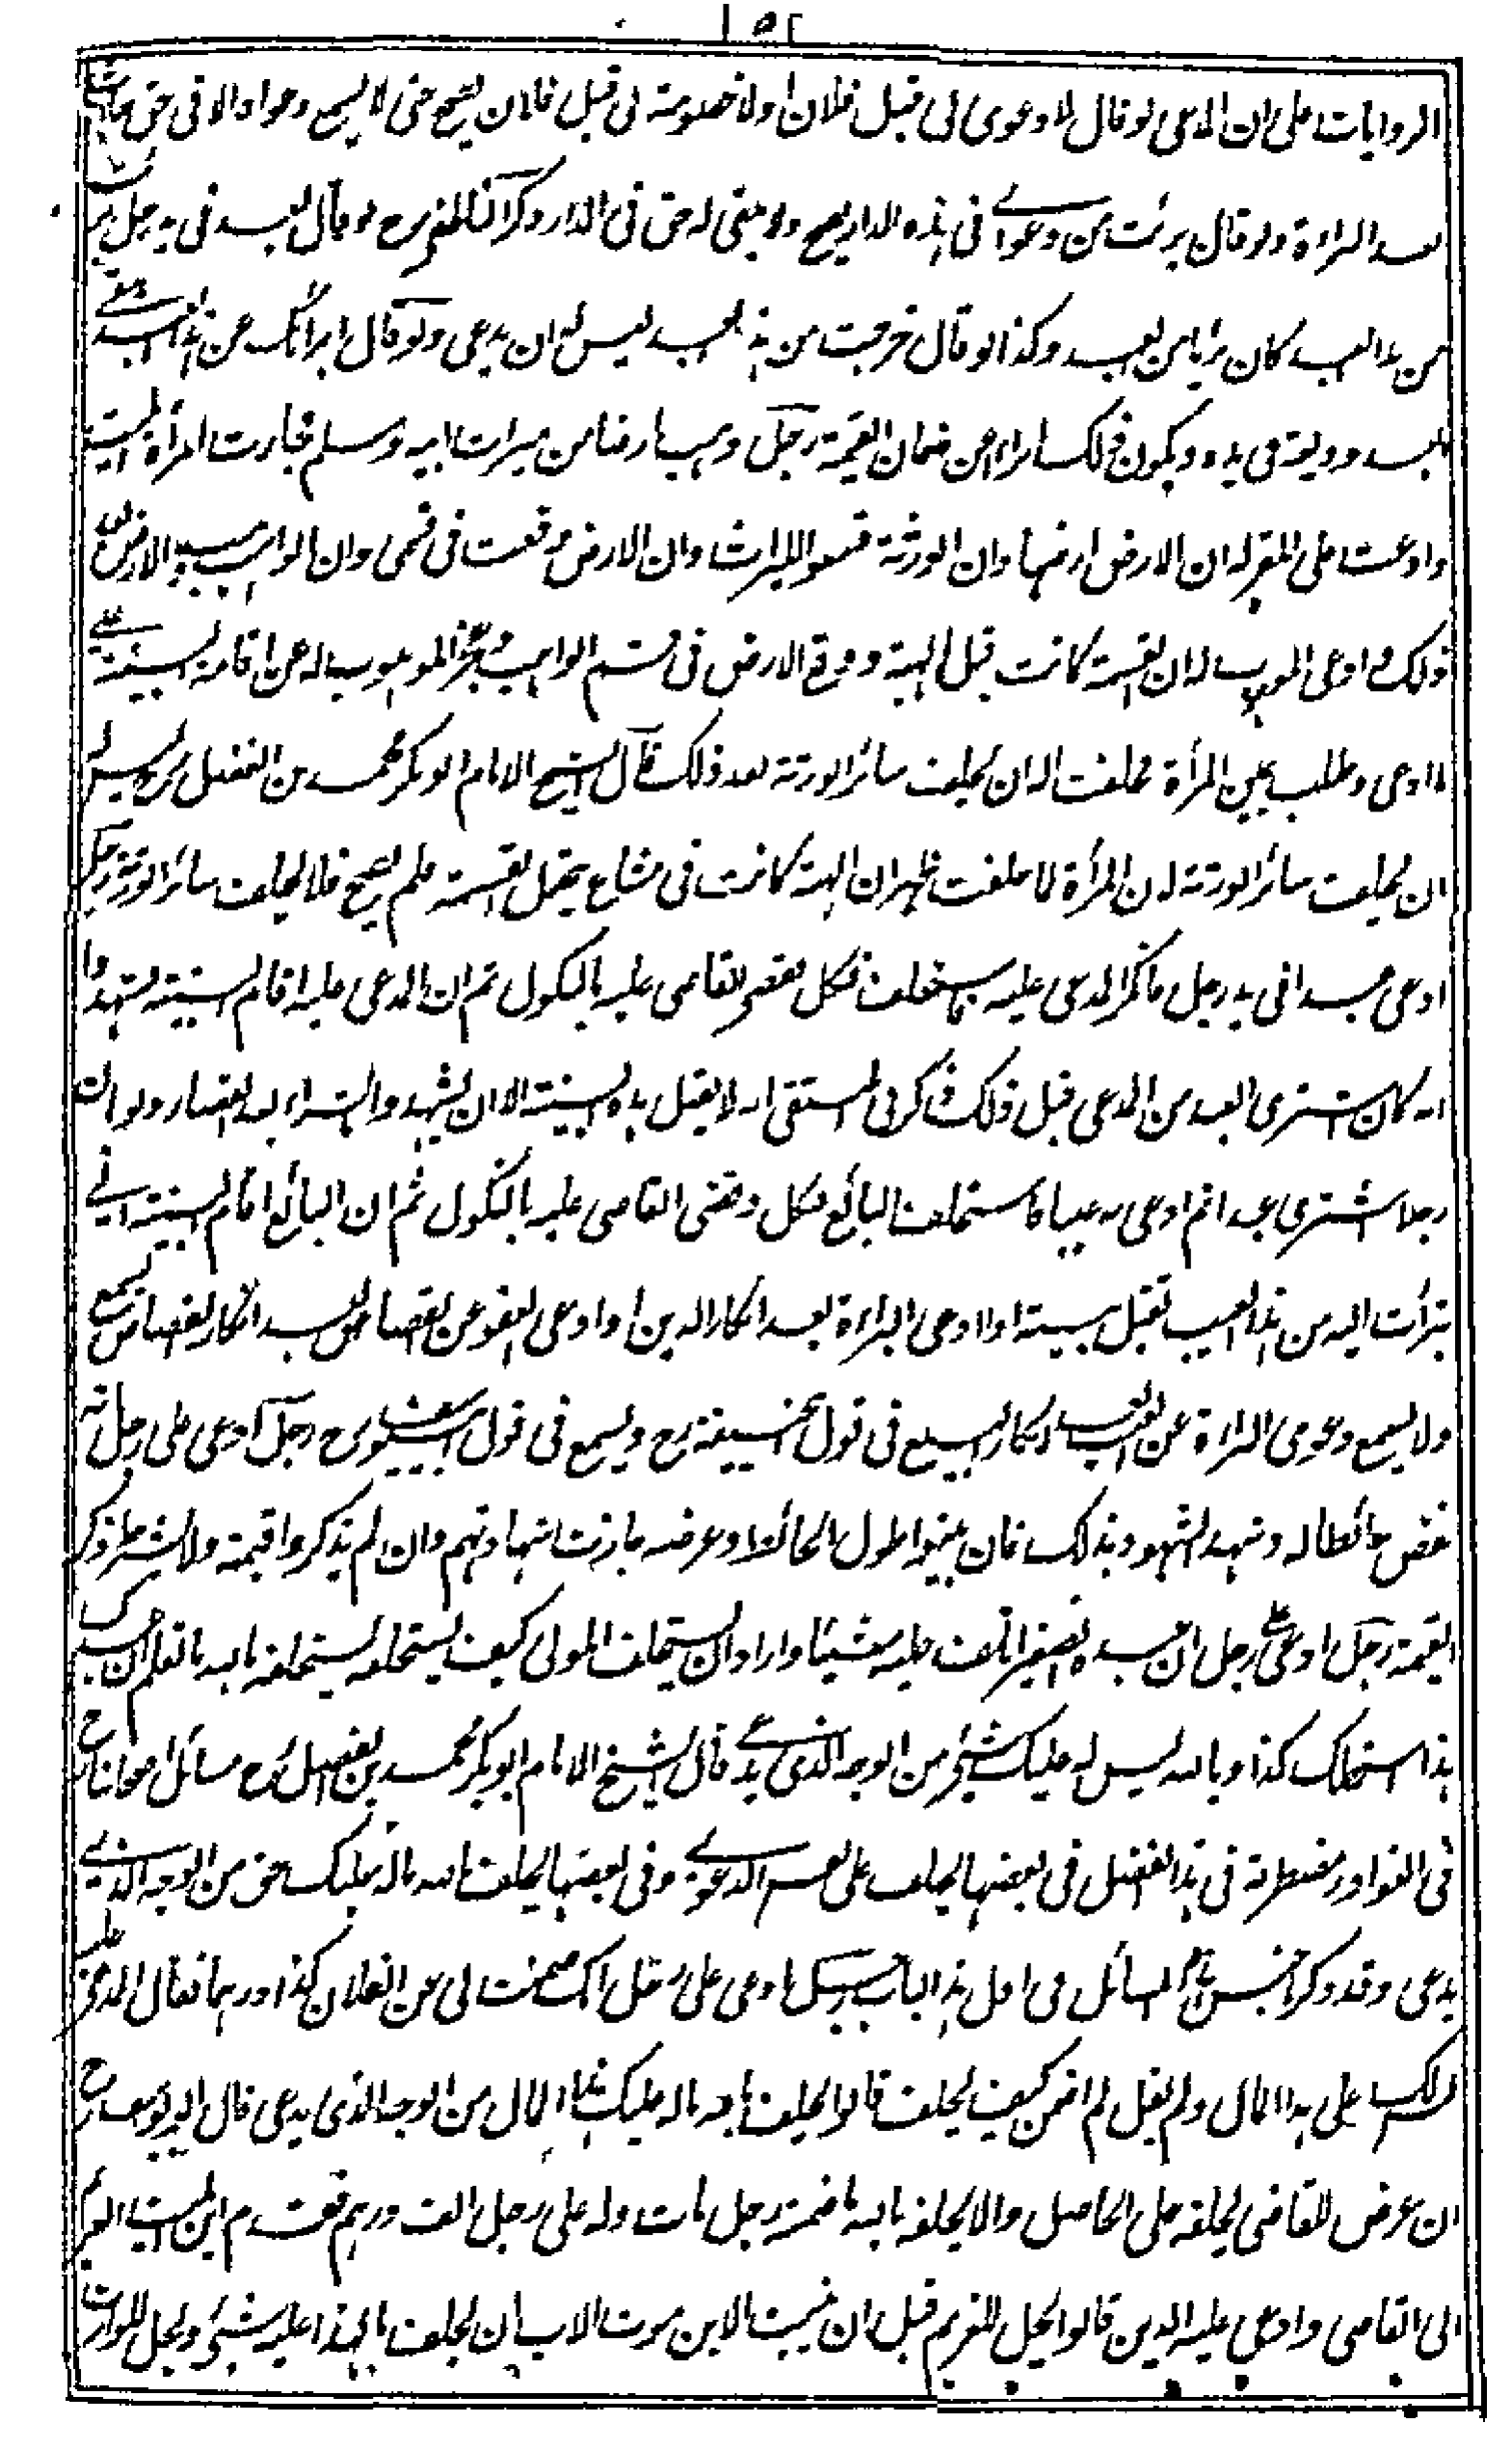 ١٥٢
الروايات على ان المدعى لو قال لا دعوى لى قبل فلان او لا خصومة لى قبل فلان يصح حتى لا يسمع دعواه الا فى حق حادث
بعد البراءة ولو قال برئت من دعواى فى هذه الدار يصح ولا يبقى له حق فى الدار وذكر الناطفى رح لو قال لعبد فى يد رجل برئت
من هذا العبد كان بريا من العبد وكذا لو قال خرجت من هذا العبد ليس له ان يدعى ولو قال ابرأتك عن هذا العبد يبقى
العبد وديعة فى يده ويكون ذلك ابراء عن ضمان القيمة رجل وهب ارضا من ميراث ابيه وسلم فجاءت امرأة الميت
وادعت على المقر له ان الارض ارضها وان الورثة قسموا الميراث وان الارض وقعت فى قسمى وان الواهب وهب الارض بعد
ذلك وادعى الموهوب له ان القسمة كانت قبل الهبة ووقع الارض فى قسم الواهب وعجز الموهوب له عن اقامة البينة على
ما ادعى وطلب يمين المرأة فحلفت اله ان يحلف سائر الورثة بعد ذلك قال الشيخ الامام ابو بكر محمد بن الفضل رح ليس له
ان يحلف سائر الورثة لان المرأة لما حلفت ظهر ان الهبة كانت فى مشاع يحتمل القسمة فلم يصح فلا يحلف سائر الورثة رجل
ادعى عبدا فى يد رجل فانكر المدعى عليه فاستحلف فنكل فقضى القاضى عليه بالنكول ثم ان المدعى عليه اقام البينة شهدوا
انه كان اشترى العبد من المدعى قبل ذلك ذكر فى المنتقى انه لا يقبل هذه البينة الا ان يشهدوا بالشراء بعد القضاء ولو ان
رجلا اشترى عبدا ثم ادعى به عيبا فاستحلف البائع فنكل وقضى القاضى عليه بالنكول ثم ان البائع اقام البينة انى
تبرأت اليه من هذا العيب تقبل بينته اولا دعى البراءة بعد انكار الدين او ادعى العفو عن القصاص بعد انكار القصاص يسمع
ولا يسمع دعوى البراءة عن العيب بعد انكار البيع فى قول ابى حنيفة رح ويسمع فى قول ابى يوسف رح رجل ادعى على رجل انه
نقض حائطا له وشهد الشهود بذلك فان بينوا طول الحائط وعرضه جازت شهادتهم وان لم يذكروا قيمة ولا يشترط ذكر
القيمة رجل ادعى على رجل ان عبده الصغير اتلف عليه شيئا واراد ان يستحلف المولى كيف يستحلفه يستحلفه بالله ما تعلم ان عبدك
هذا استهلك كذا وبالله ليس له عليك شئ من الوجه الذى يدعى قال الشيخ الامام ابو بكر محمد بن الفضل رح مسائل اصحابنا رح
فى النوادر مضطربة فى هذا الفصل فى بعضها يحلف على نفس الدعوى وفى بعضها يحلف بالله ما له عليك حق من الوجه الذى
يدعى وقد ذكر جنس هذه المسائل فى اول هذا الباب رجل ادعى على رجل انك ضمنت لى عن الفلان كذا درهما فقال المدعى عليه
ليس لك على هذا المال ولم يقل لم اضمن كيف يحلف قالوا يحلف بالله ما له عليك هذا المال من الوجه الذى يدعى قال ابو يوسف رح
ان عرض للقاضى يحلفه على الحاصل والا يحلفه بالله ما ضمنت رجل مات وله على رجل الف درهم فقدم ابن الميت الغريم
الى القاضى وادعى عليه الدين قالوا يحل للغريم قبل ان يثبت الابن موت الاب ان يحلف ما لهذا عليه شئ ويحل للوارث